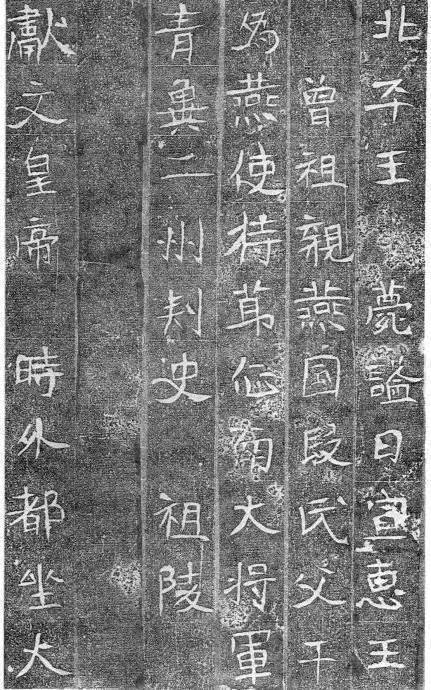 北平王 薨謚曰宣惠王
曾祖親燕国段氏父干
為燕使持節征南大将軍
青冀二州刺史 祖陵
獻文皇帝 時外都坐大